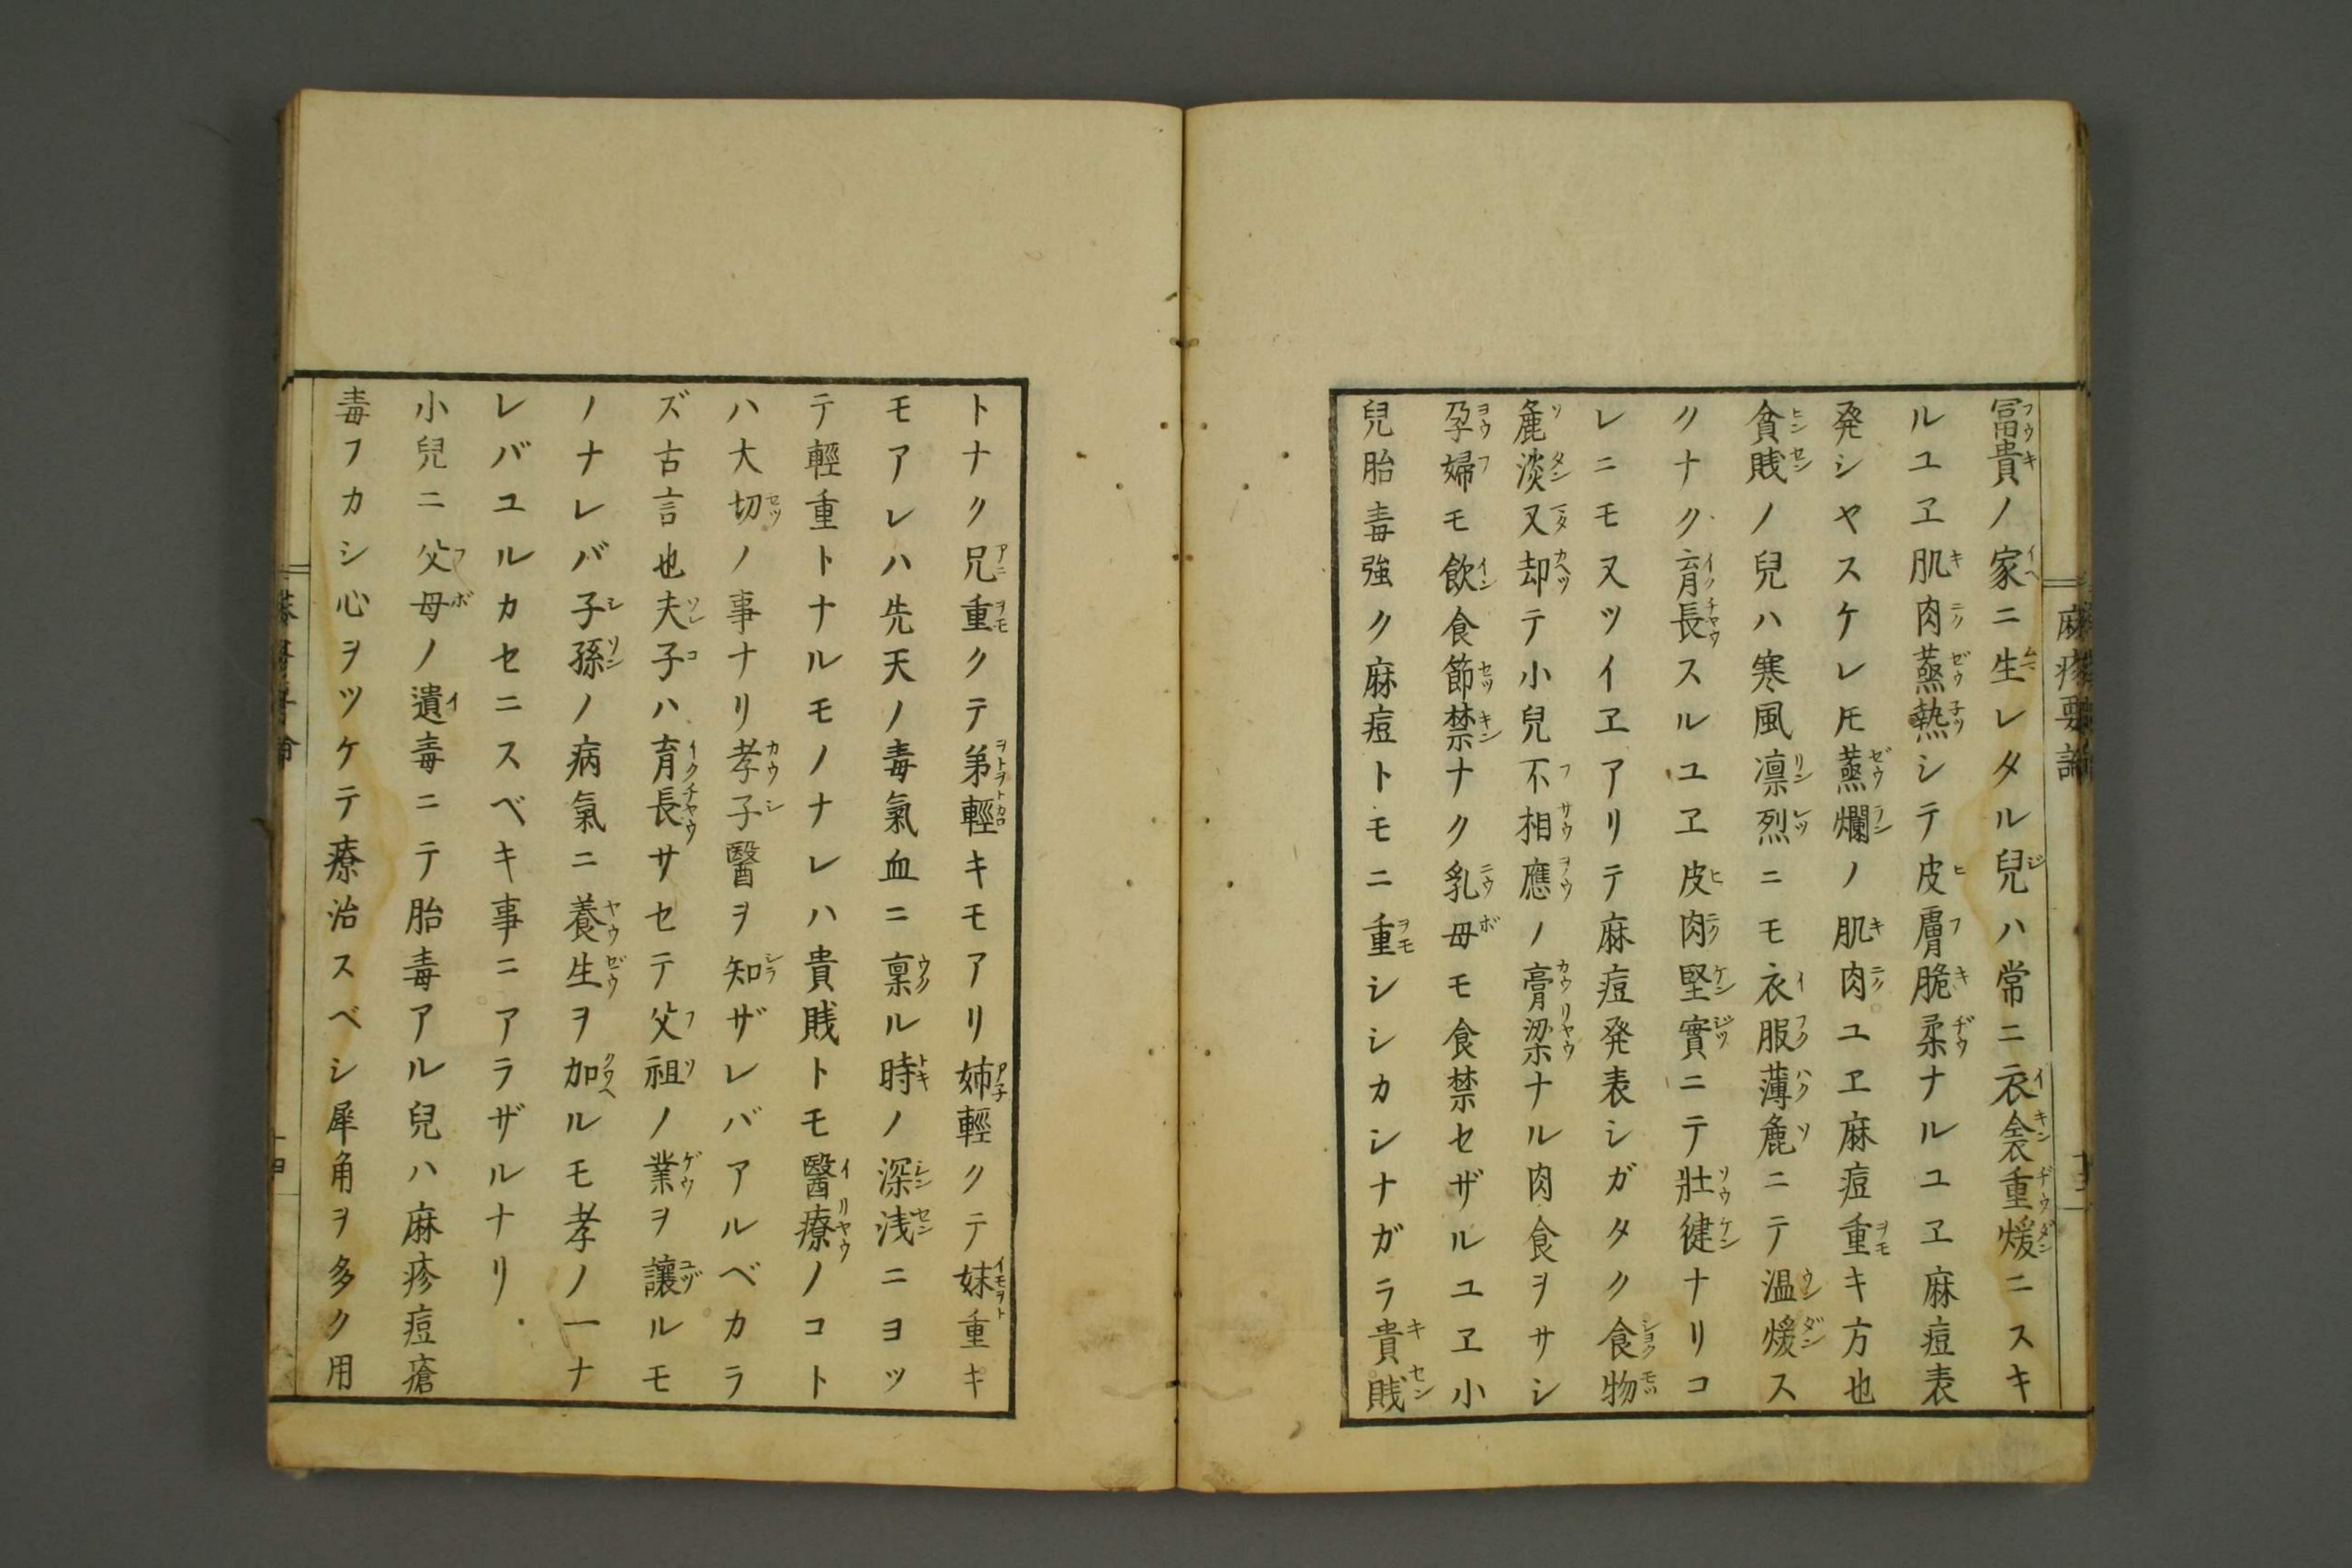 冨貴ノ家ニ生レタル兒ハ常ニ衣衾重煖ニスキ
ルユヱ肌肉蒸熱シテ皮膚脆柔ナルユヱ麻痘表
発シヤスケレ𪜈蒸爛ノ肌肉ユヱ麻痘重キ方也
貧賎ノ兒ハ寒風凛烈ニモ衣服薄麁ニテ温煖ス
クナク育長スルユヱ皮肉堅實ニテ壯健ナリコ
レニモ又ツイヱアリテ麻痘発表シガタク食物
麁淡又却テ小兒不相應ノ膏梁ナル肉食ヲサシ
孕婦モ飲食節禁ナク乳母モ食禁セザルユヱ小
兒胎毒強ク麻痘トモニ重シシカシナガラ貴賎
麻疹要論
トナク兄重クテ弟輕キモアリ姉輕クテ妹重キ
モアレハ先天ノ毒氣血ニ稟ル時ノ深浅ニヨッ
テ輕重トナルモノナレハ貴賎トモ醫療ノコト
ハ大切ノ事ナリ孝子醫ヲ知ザレバアルベカラ
ズ古言也夫子ハ育長サセテ父祖ノ業ヲ讓ルモ
ノナレバ子孫ノ病氣ニ養生ヲ加ルモ孝ノ一ナ
レバユルカセニスベキ事ニアラザルナリ
小兒ニ父母ノ遺毒ニテ胎毒アル兒ハ麻疹痘瘡
毒フカシ心ヲツケテ療治スベシ犀角ヲ多ク用